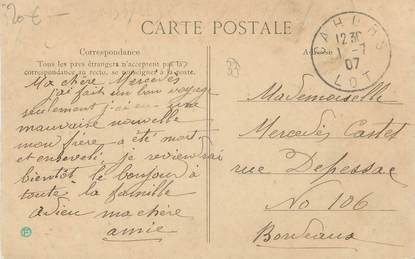 20 €
CARTE POSTALE
Correspondance
Tous les pays étrangers n'acceptent pas la
correspondance au recto, se renseigner à la poste.
33
CAHORS
12 30
1 - 7
07
LOT
Ma chère Mercedès
j'ai fait un bon voyage
seulement j'ai eu une
mauvaise nouvelle
mon frère a été mort
et enseveli, je reviendrai
bientôt le bonjour à
toute la famille
adieu ma chère
amie
Mademoiselle
Mercedès Castet
rue Depessac
No 106
Bordeaux